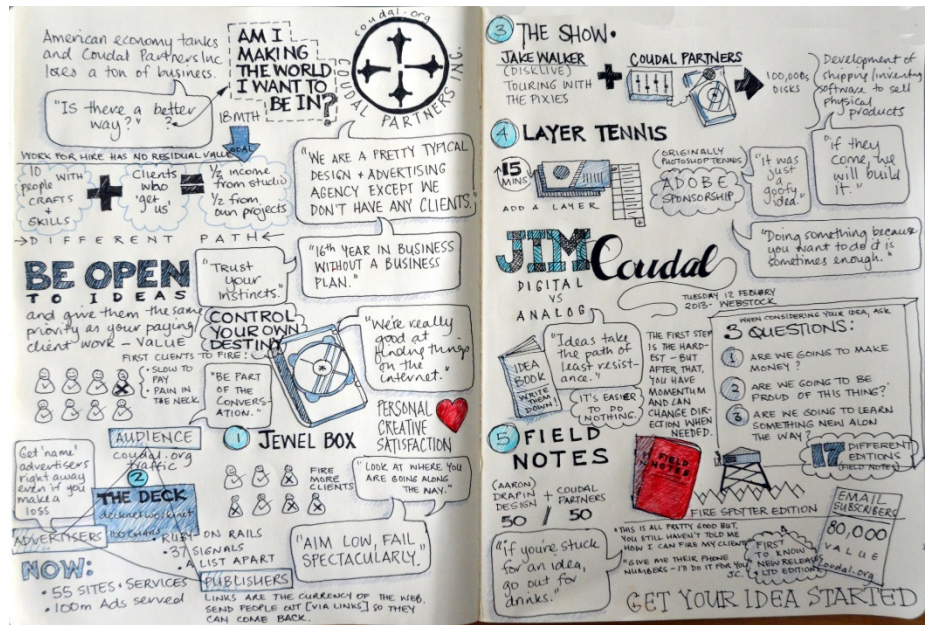 American economy tanks
and Coudal Partners Inc
loses a ton of business.
"Is there a better
way?" ?
AM I
MAKING
THE WORLD
I WANT TO
BE IN?
coudal.org
COUDAL PARTNERS INC.
18 MTH
GOAL
WORK FOR HIRE HAS NO RESIDUAL VALUE
10 people WITH
CRAFTS
+
SKILLS
+
Clients
who
'get
us'
=
1/2 income
from studio
1/2 from
own projects
DIFFERENT PATH
"WE ARE A PRETTY TYPICAL
DESIGN + ADVERTISING
AGENCY EXCEPT WE
DON'T HAVE ANY CLIENTS."
"16th YEAR IN BUSINESS
WITHOUT A BUSINESS
PLAN."
BE OPEN
TO IDEAS
and give them the same
priority as your paying/
client work - VALUE
"Trust
your
instincts."
CONTROL
YOUR OWN
DESTINY
"We're really
good at
finding things
on the
internet."
FIRST CLIENTS TO FIRE:
• SLOW TO
PAY
• PAIN IN
THE NECK
"BE PART
OF THE
CONVERS-
ATION."
PERSONAL
CREATIVE
SATISFACTION
1 JEWEL BOX
FIRE
MORE
CLIENTS
"LOOK AT WHERE YOU
ARE GOING ALONG
THE WAY."
"AIM LOW, FAIL
SPECTACULARLY."
AUDIENCE
coudal.org
traffic
Get 'name'
advertisers
right away
even if you
make a
loss
2
THE DECK
ADVERTISERS
RUBY-ON RAILS
37 SIGNALS
A LIST APART
PUBLISHERS
LINKS ARE THE CURRENCY OF THE WEB.
SEND PEOPLE OUT [VIA LINKS] SO THEY
CAN COME BACK.
NOW:
• 55 SITES + SERVICES
• 100m Ads served
3 THE SHOW.
JAKE WALKER
(DISKLIVE)
TOURING WITH
THE PIXIES
+
COUDAL PARTNERS
100,000s
DISKS
Development of
shipping/inventory
software to sell
physical
products
4 LAYER TENNIS
15
MINS
ADD A LAYER
(ORIGINALLY
PHOTOSHOP TENNIS)
ADOBE
SPONSORSHIP
"it was
just
a
goofy
idea."
"if they
come, we
will build
it."
"Doing something because
you want to do it is
sometimes enough."
JIM Coudal
DIGITAL
VS
ANALOG
TUESDAY 12 FEBUARY
2013- WEBSTOCK
IDEA
BOOK
WRITE
THEM
DOWN!
"Ideas take
the path of
least resist-
ance."
IT'S EASIER
TO DO
NOTHING.
THE FIRST STEP
IS THE HARD-
EST - BUT
AFTER THAT,
YOU HAVE
MOMENTUM
AND CAN
CHANGE DIR-
ECTION WHEN
NEEDED.
WHEN CONSIDERING YOUR IDEA, ASK
3 QUESTIONS:
1 ARE WE GOING TO MAKE
MONEY?
2 ARE WE GOING TO BE
PROUD OF THIS THING?
3 ARE WE GOING TO LEARN
SOMETHING NEW ALON
THE WAY?
17 DIFFERENT
EDITIONS
(FIELD NOTES)
5 FIELD
NOTES
(AARON)
DRAPIN
DESIGN
50
+
/
COUDAL
PARTNERS
50
FIELD
NOTES
FIRE SPOTTER EDITION
"if you're stuck
for an idea,
go out for
drinks."
"THIS IS ALL PRETTY GOOD BUT,
YOU STILL HAVEN'T TOLD ME
HOW I CAN FIRE MY CLIENT
"GIVE ME THEIR PHONE
NUMBERS - I'LL DO IT FOR YOU
JC.
FIRST
TO KNOW
NEW RELEASES
+ LTD EDITION
EMAIL
SUBSCRIBERS
80,000
VALUE
coudal.org
GET YOUR IDEA STARTED